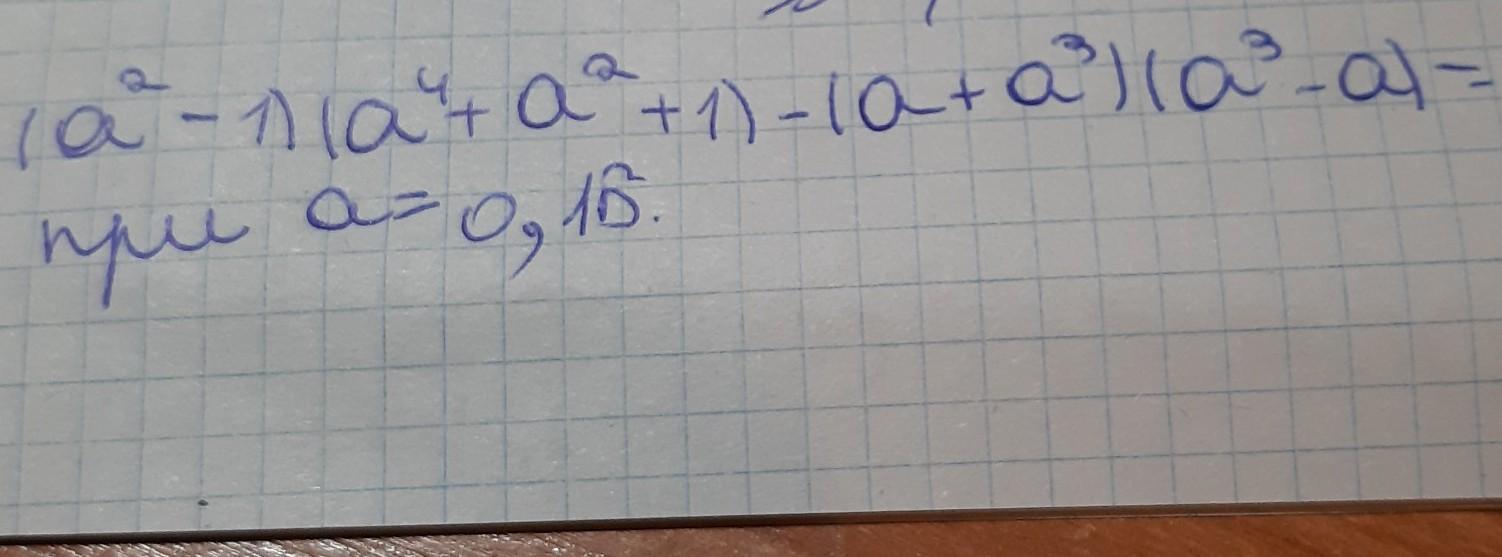 (a² - 1)(a⁴ + a² + 1) - (a + a³)(a³ - a) =
при a = 0,15.